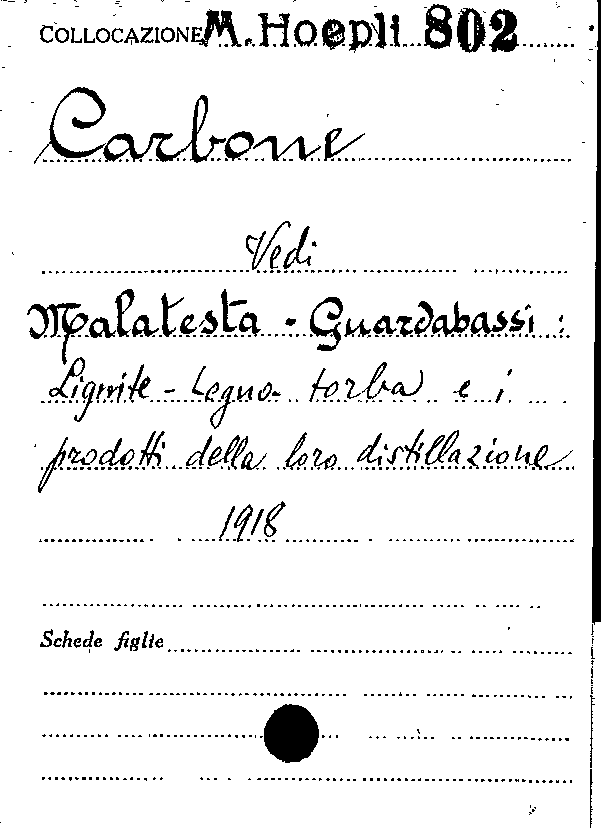 COLLOCAZIONE M. Hoepli 802
Carbone
Vedi
Malatesta - Guardabassi :
Lignite - Legno - torba e i
prodotti della loro distillazione
1918
Schede figlie